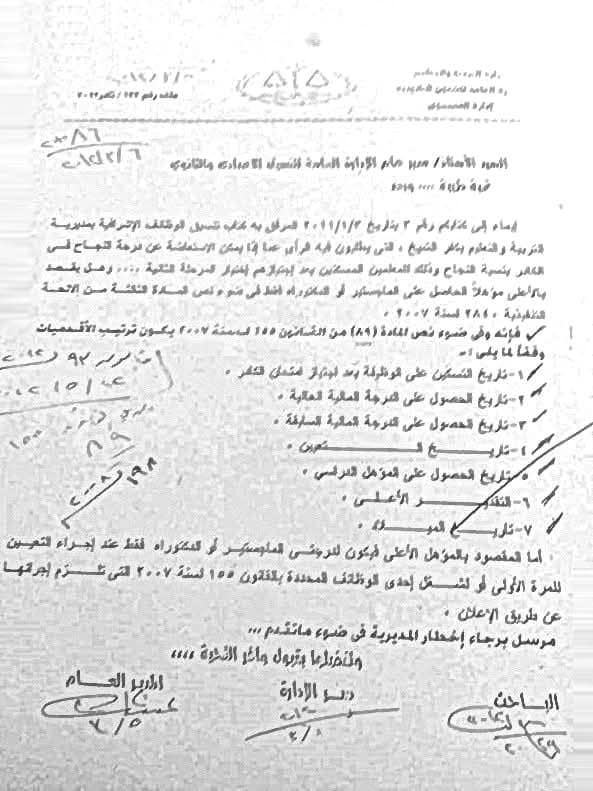 السيد الأستاذ/ مدير عام الإدارة العامة للتعليم الاعدادى والثانوى
تحية طيبة ,,,, وبعد
إيماء إلى كتابكم رقم ٣ بتاريخ ٢٠١١/١/٣ المرفق به كتاب تنسيق الوظائف الإشرافية بمديرية
التربية والتعليم بكفر الشيخ ، التى يطلبون فيه الرأى عما إذا يمكن الاستعاضة عن درجة النجاح فى
الكادر بنسبة النجاح وذلك للمعلمين المسكنين بعد إجتيازهم إختبار المرحلة الثانية .... وهل يقصد
بالأعلى مؤهلاً الحاصل على الماجستير أو الدكتوراه فقط فى ضوء نص المادة الثالثة من الائحة
التنفيذية ٢٨٤٠ لسنة ٢٠٠٧ .
فإنه وفى ضوء نص المادة (٨٩) من القانون ١٥٥ لسنة ٢٠٠٧ يكون ترتيب الأقدميات
وفقاً لما يلى :-
١- تاريخ التسكين على الوظيفة بعد اجتياز امتحان الكادر .
٢- تاريخ الحصول على الدرجة المالية الحالية .
٣- تاريخ الحصول على الدرجة المالية السابقة .
٤- تاريخ التعيين .
٥- تاريخ الحصول على المؤهل الدراسى .
٦- التقدير الأعلى .
٧- تاريخ الميلاد .
أما المقصود بالمؤهل الأعلى فيكون لدرجتى الماجستير أو الدكتوراه فقط عند إجراء التعيين
للمرة الأولى أو لشغل إحدى الوظائف المحددة بالقانون ١٥٥ لسنة ٢٠٠٧ التى تلزم إجرائها
عن طريق الإعلان .
مرسل برجاء إخطار المديرية فى ضوء ماتقدم ,,,
وتفضلوا بقبول وافر التحية ,,,,
الباحث
مدير الإدارة
المدير العام